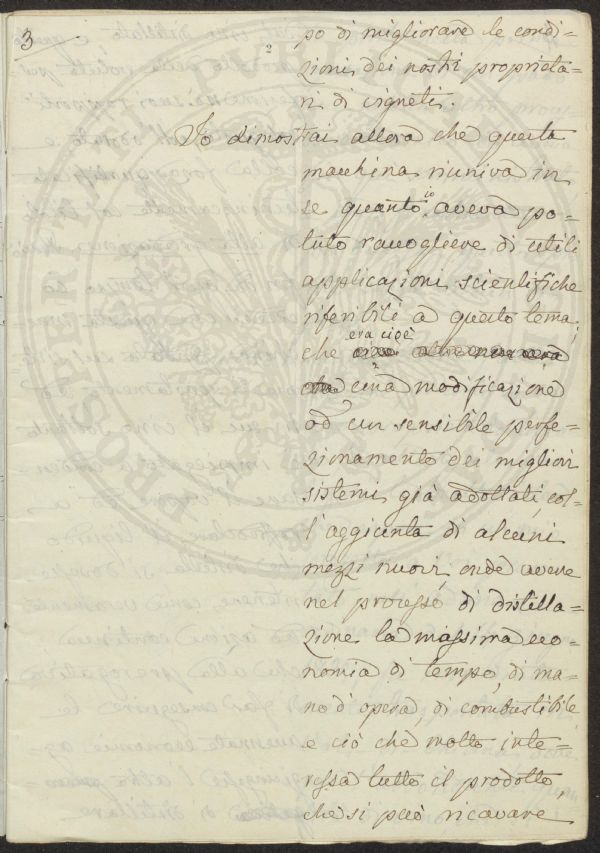 3
2
po di migliorare le condi=
zioni dei nostri proprieta=
ri di vigneti.
Io dimostrai allora che questa
macchina riuniva in
se quanto io aveva po=
tuto raccogliere di utili
applicazioni scientifiche
riferibili a questo tema;
che era cioè
una modificazione
od un sensibile perfe=
zionamento dei migliori
sistemi già adottati, col=
l'aggiunta di alcuni
mezzi nuovi, onde avere
nel processo di distilla=
zione la massima eco=
nomia di tempo, di ma=
no d'opera, di combustibile,
e ciò che molto inte=
ressa tutto il prodotto,
che si può ricavare,
PROSPERITATI PUBL